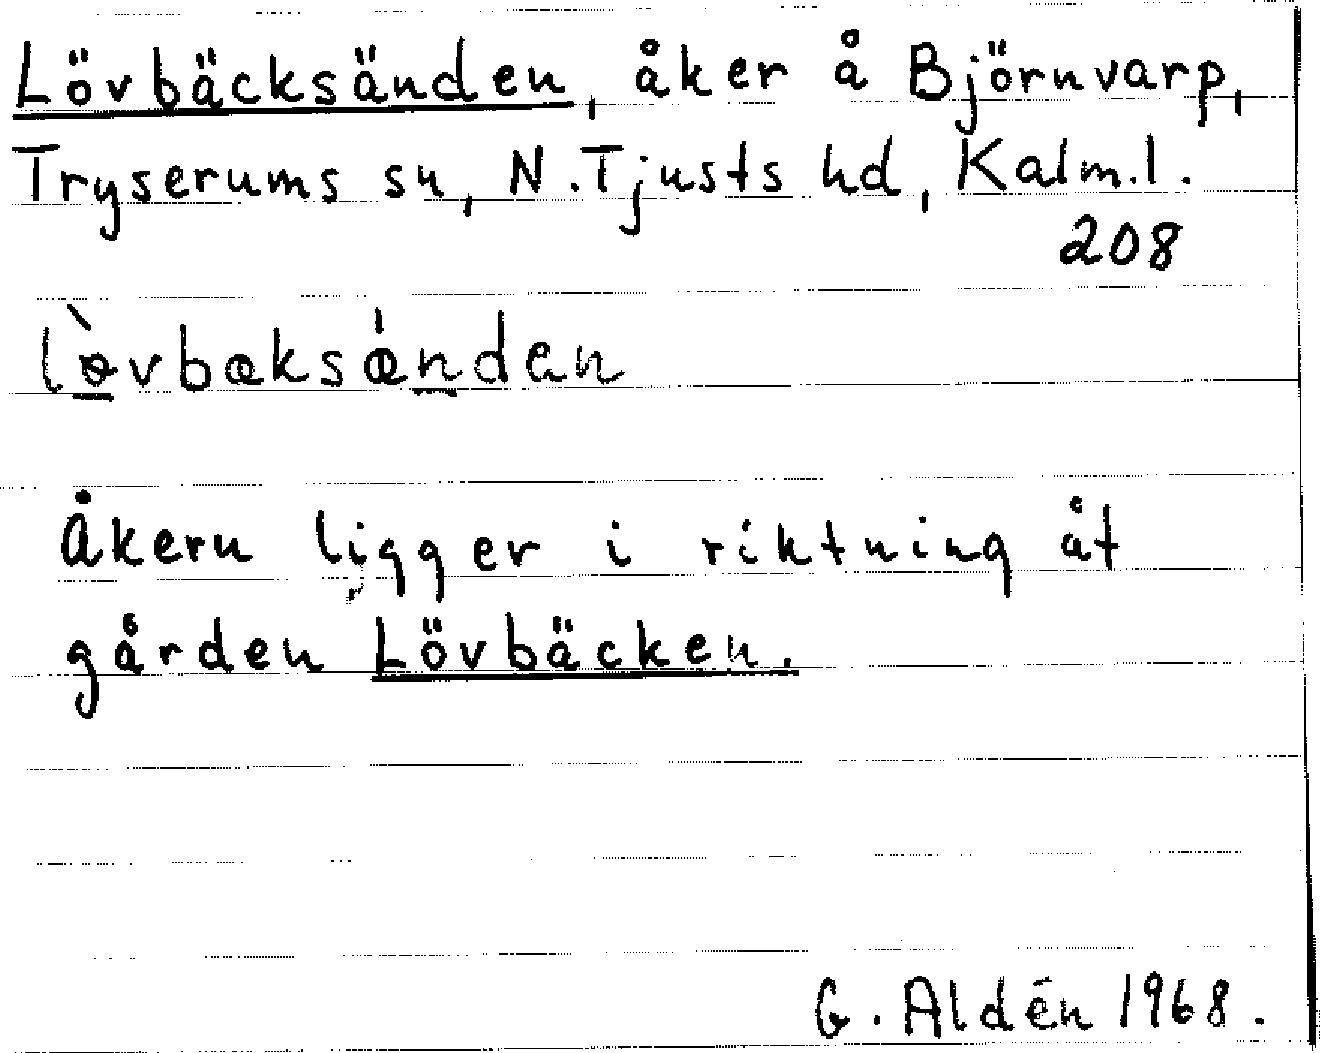 Lövbäcksänden, åker å Björnvarp,
Tryserums sn, N. Tjusts hd, Kalm. l.
208
lø̀vbæksǽnden
Åkern ligger i riktning åt
gården Lövbäcken.
G. Aldén 1968.